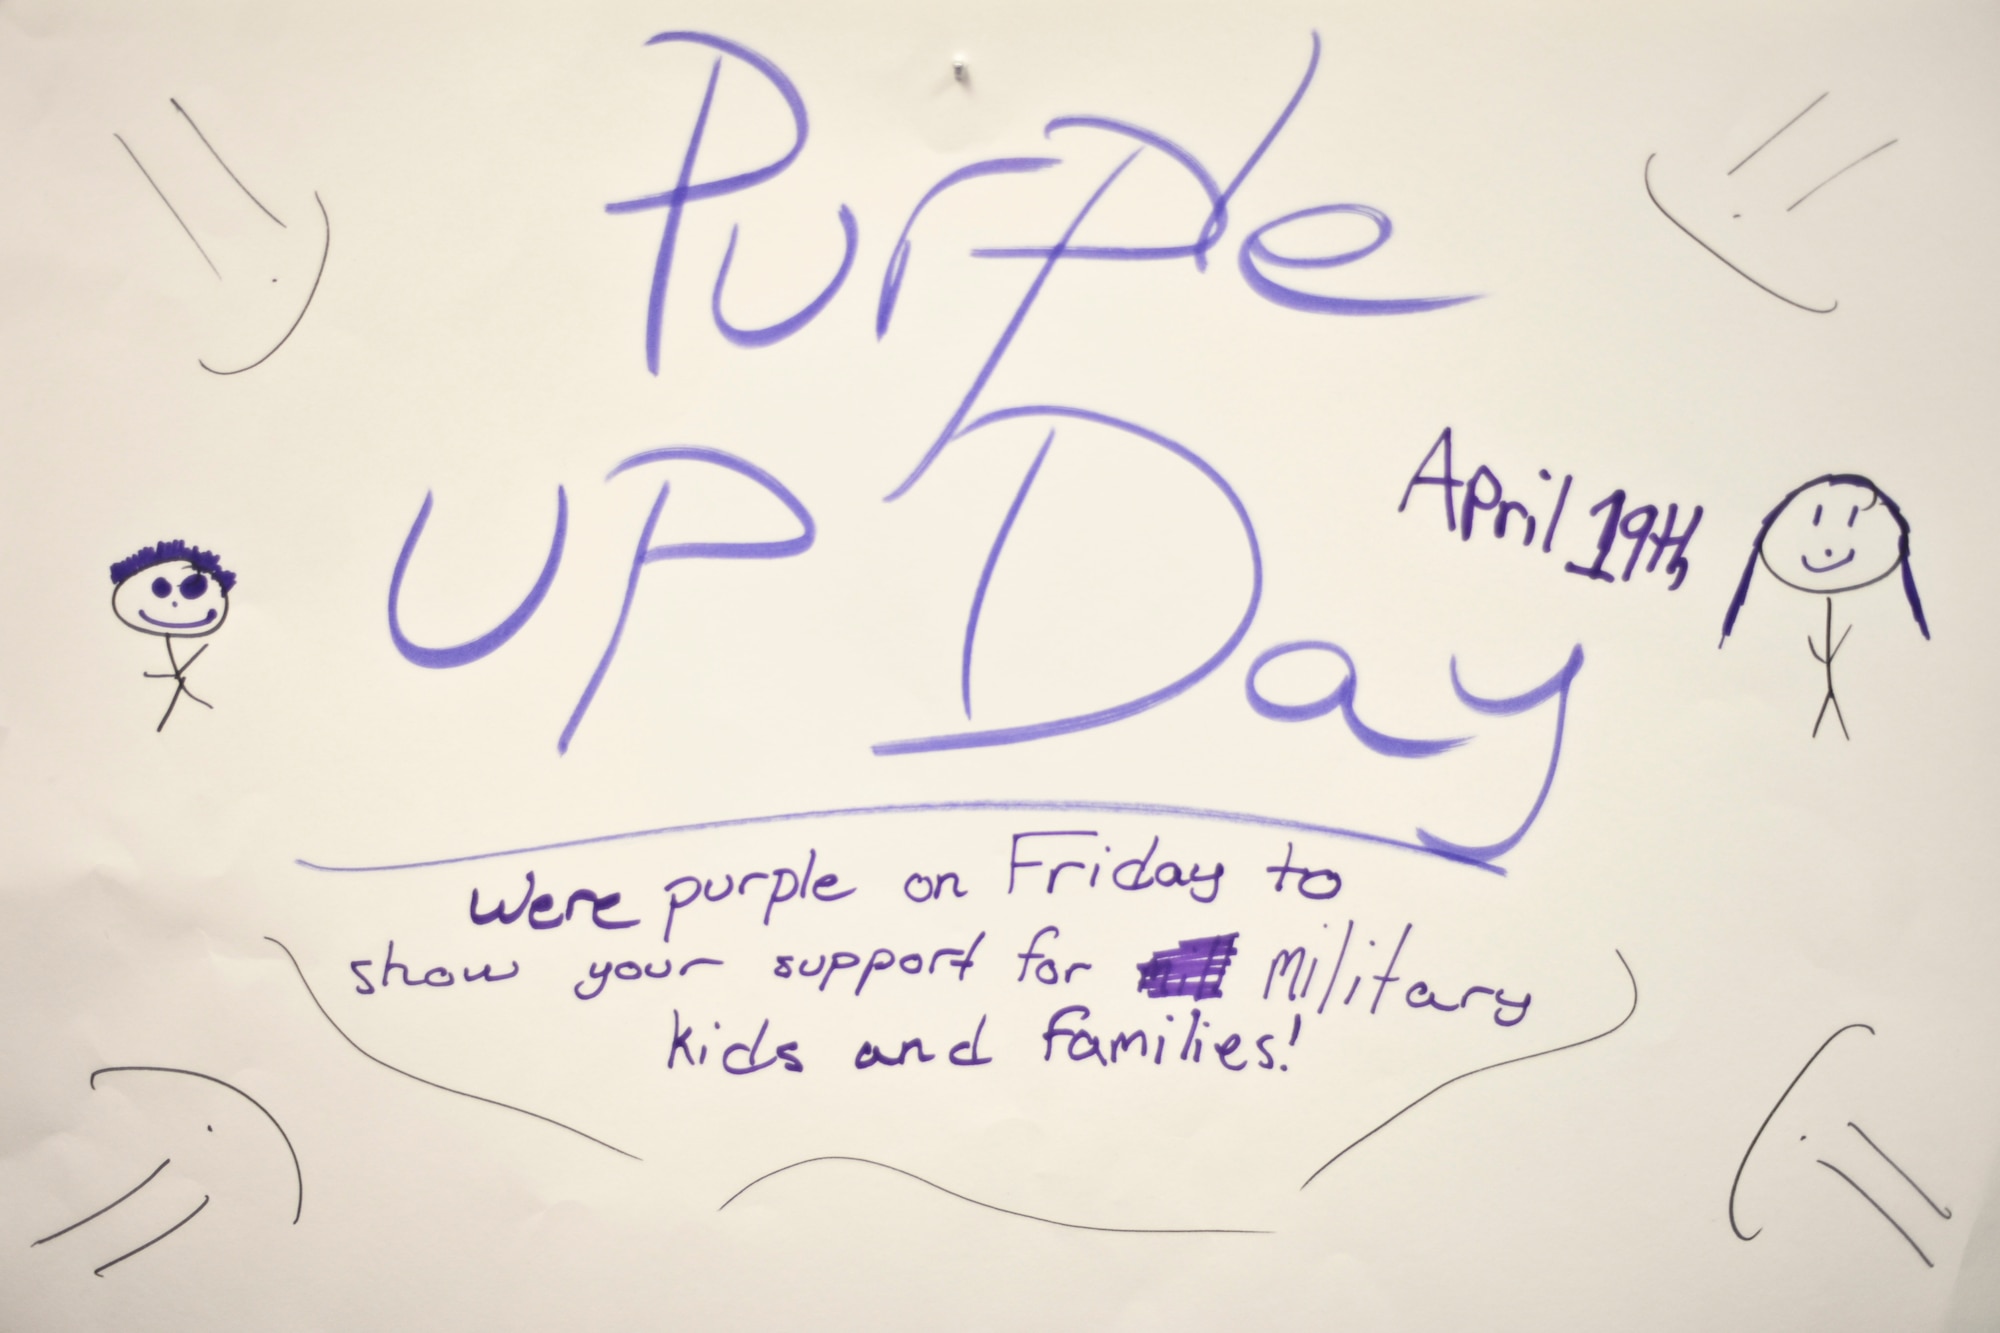 Purple
UP Day
April 19th
Were purple on Friday to
show your support for military
kids and families!